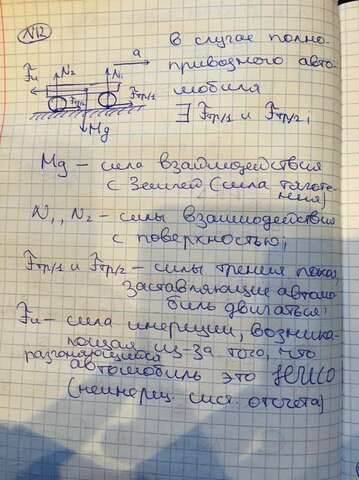 N12
в случае полно-
приводного авто-
мобиля
∃ Fтр/1 и Fтр/2,
a
Fи
N2
N1
Fтр/2
Fтр/1
Mg
Mg – сила взаимодействия
с Землей (сила тяготе-
ния)
N1, N2 – силы взаимодействия
с поверхностью,
Fтр/1 и Fтр/2 – силы трения покоя,
заставляющие автомо-
биль двигаться;
Fи – сила инерции, возника-
ющая из-за того, что
разгоняющийся
автомобиль это НеИСО
(неинерц. сист. отсчета)